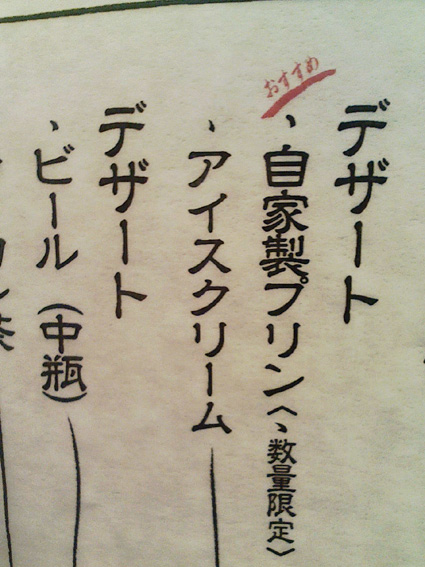 デザート
おすすめ
、自家製プリン〈、数量限定〉
、アイスクリーム
デザート
、ビール(中瓶)